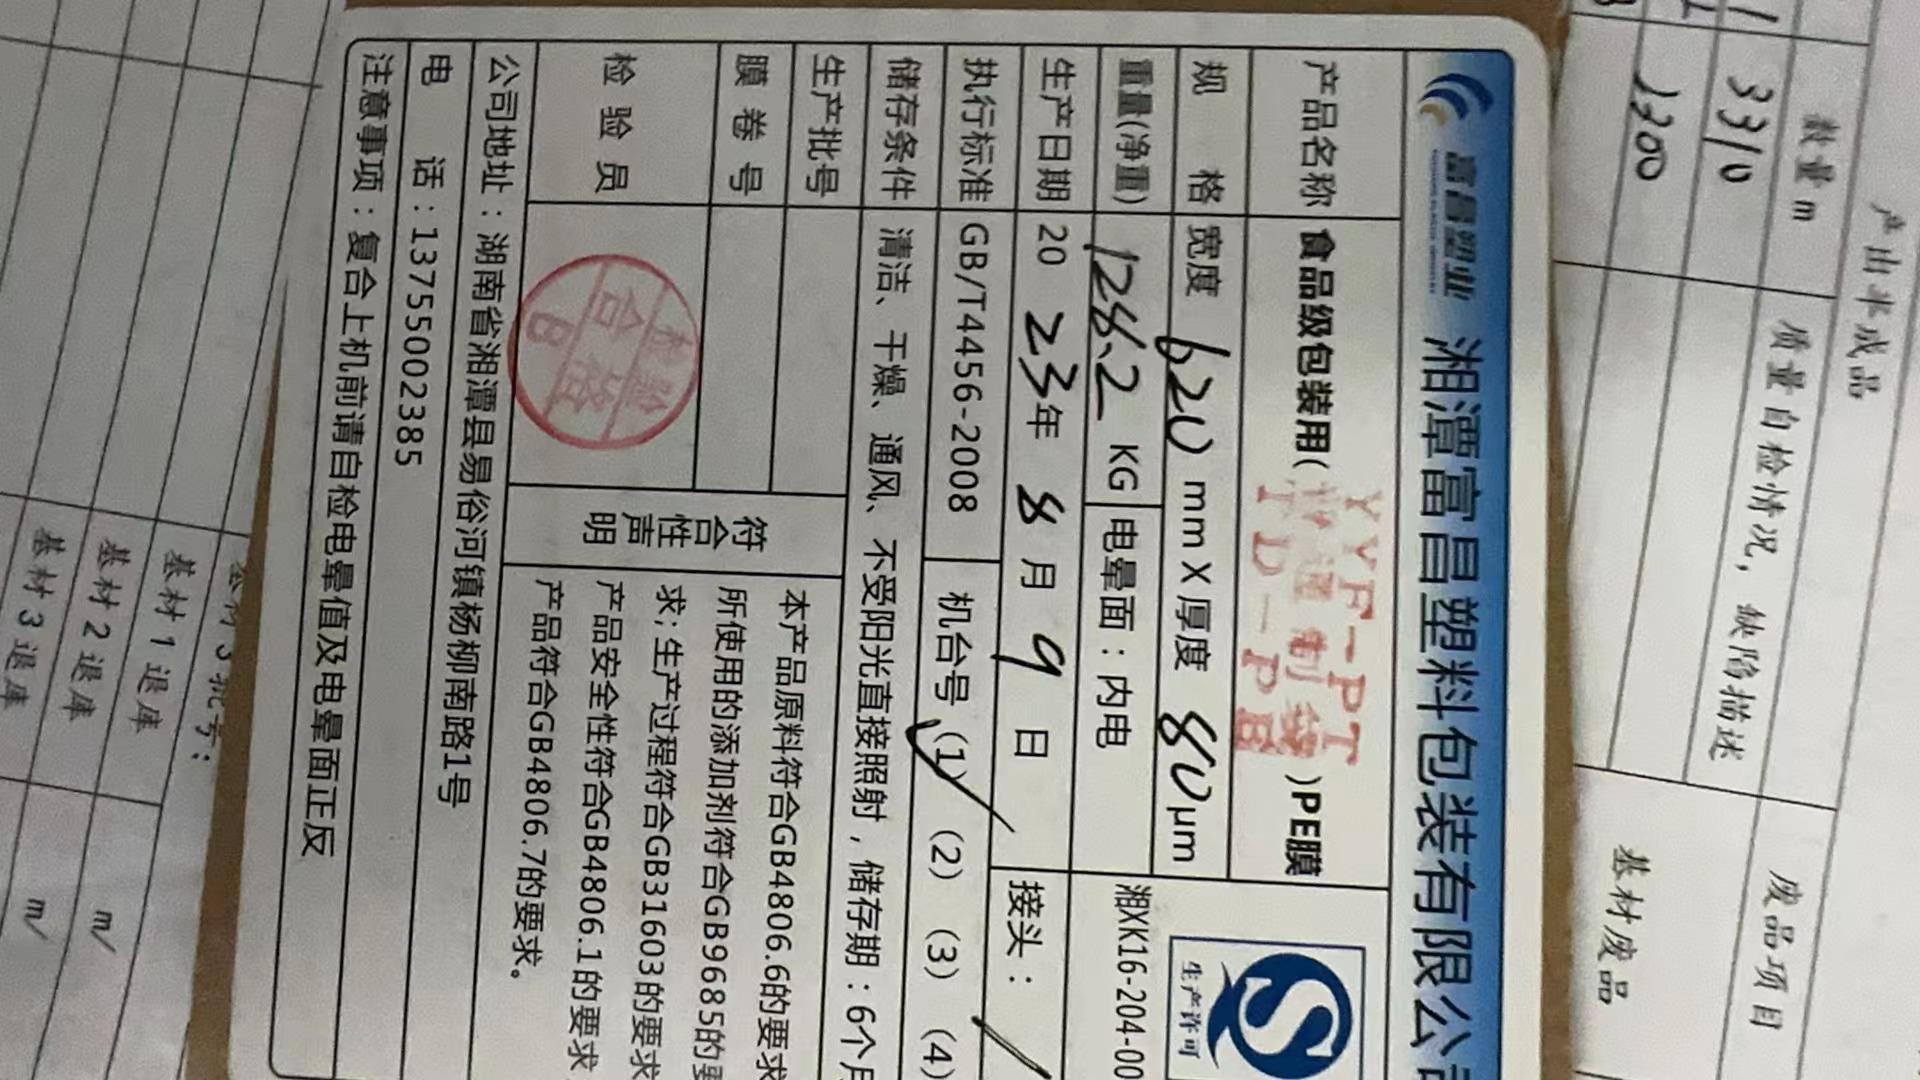 富昌塑业 湘潭富昌塑料包装有限公
产品名称 食品级包装用( YYF-PT 普通制袋 TD-PE )PE膜
规 格 宽度 620 mm X 厚度 80 μm
重量(净重) 128.2 KG 电晕面：内电
生产许可
湘XK16-204-00
生产日期 20 23 年 8 月 9 日 接头： /
执行标准 GB/T4456-2008 机台号 (1) (2) (3) (4)
储存条件 清洁、干燥、通风、不受阳光直接照射，储存期：6个月
生产批号
膜 卷 号
检 验 员 检验 合格 8
符合性声明
本产品原料符合GB4806.6的要求
所使用的添加剂符合GB9685的要
求；生产过程符合GB31603的要求
产品安全性符合GB4806.1的要求
产品符合GB4806.7的要求。
公司地址：湖南省湘潭县易俗河镇杨柳南路1号
电 话：13755002385
注意事项：复合上机前请自检电晕值及电晕面正反
产出半成品
数量m 质量自检情况，缺陷描述 废品项目
3310
1300
基材废品
基材3批号：
基材1退库
基材2退库 m/
基材3退库 m/